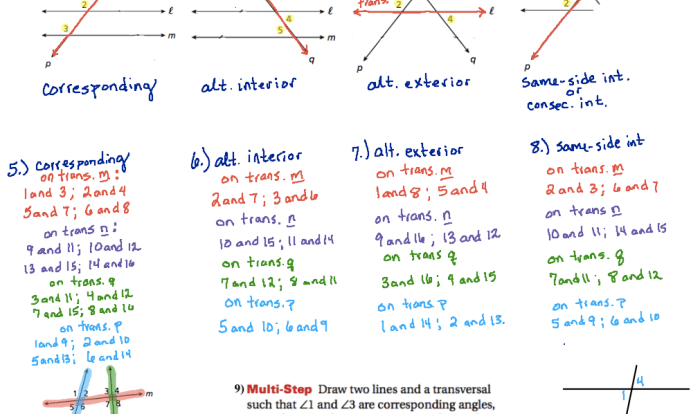 trans.
2
2
ℓ
ℓ
4
ℓ
4
3
m
5
m
p
q
p
q
p
corresponding
alt. interior
alt. exterior
same-side int.
or
consec. int.
5.) corresponding
on trans. m:
1 and 3; 2 and 4
5 and 7; 6 and 8
on trans n:
9 and 11; 10 and 12
13 and 15; 14 and 16
on trans. q
3 and 11; 4 and 12
7 and 15; 8 and 16
on trans. p
1 and 9; 2 and 10
5 and 13; 6 and 14
6.) alt. interior
on trans. m
2 and 7; 3 and 6
on trans. n
10 and 15; 11 and 14
on trans. q
7 and 12; 8 and 11
on trans. p
5 and 10; 6 and 9
7.) alt. exterior
on trans. m
1 and 8; 5 and 4
on trans. n
9 and 16; 13 and 12
on trans q
3 and 16; 4 and 15
on trans p
1 and 14; 2 and 13.
8.) same-side int
on trans. m
2 and 3; 6 and 7
on trans n
10 and 11; 14 and 15
on trans. q
7 and 11; 8 and 12
on trans. p
5 and 9; 6 and 10
1 2 3 4
m
5 6 7 8
9) Multi-Step Draw two lines and a transversal
such that ∠1 and ∠3 are corresponding angles,
4
1